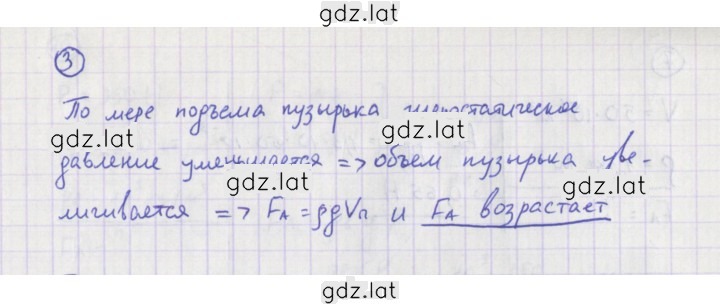 gdz.lat
3
По мере подъема пузырька гидростатическое
gdz.lat gdz.lat
давление уменьшается => объем пузырька уве-
gdz.lat gdz.lat
личивается => FA = ρgVп и FA возрастает
gdz.lat